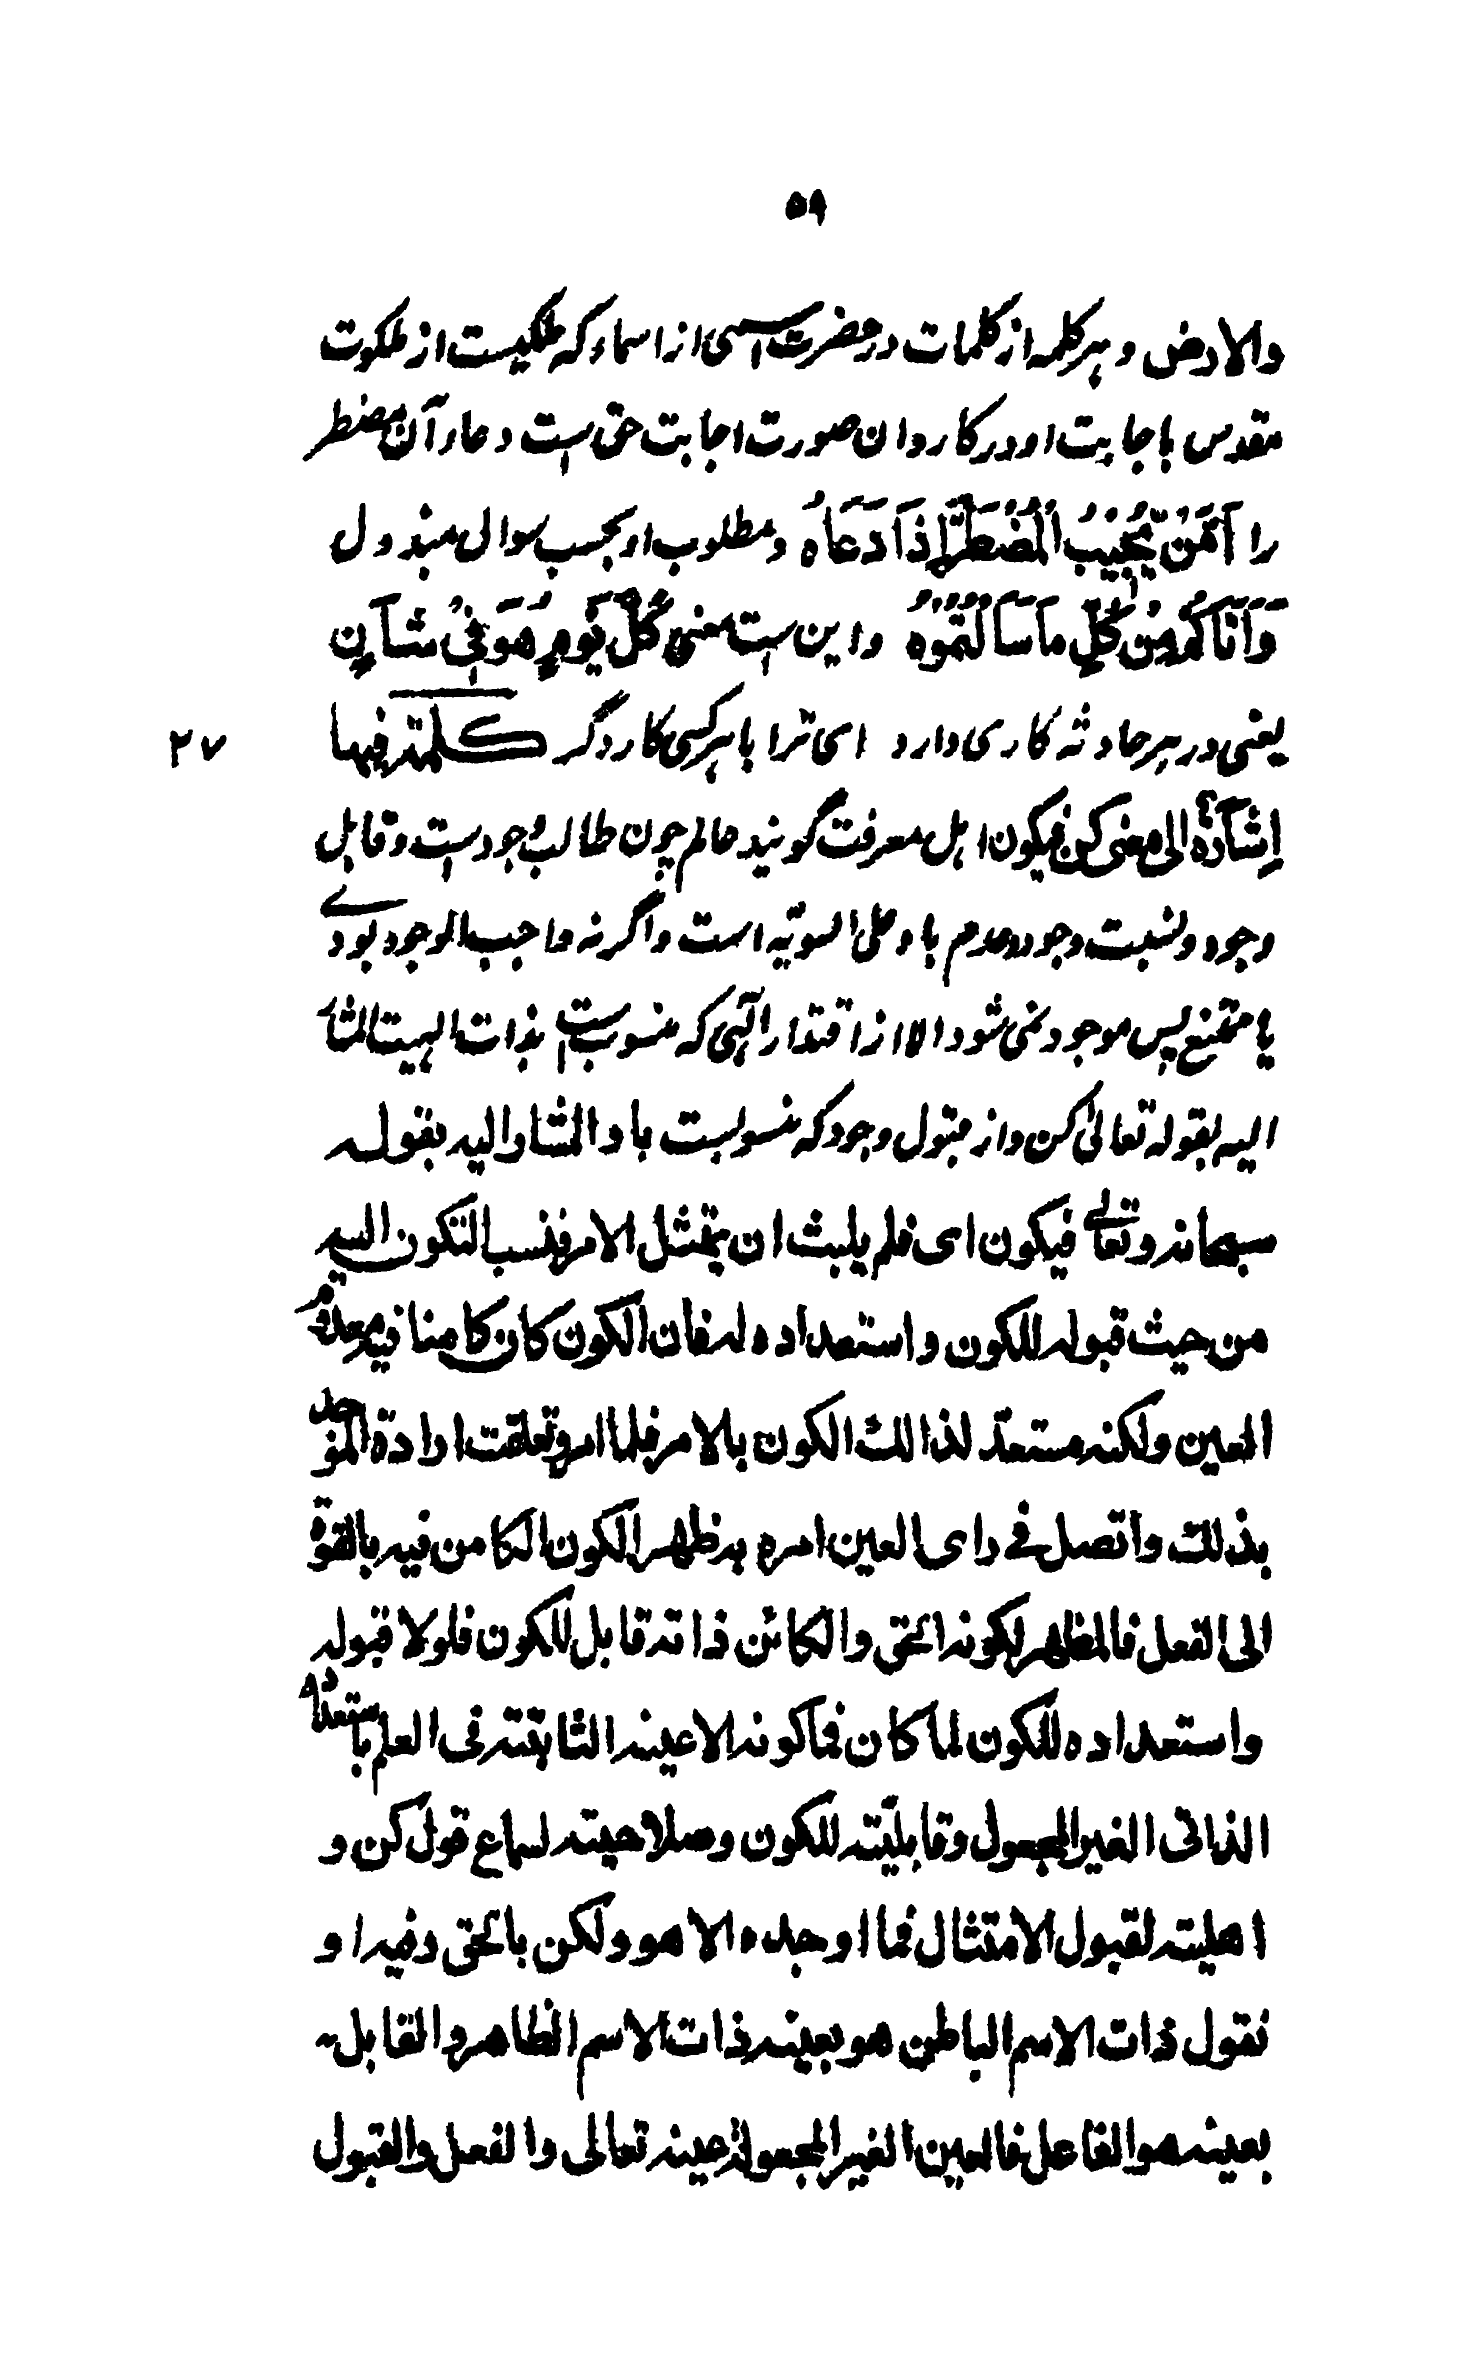 ۵۹
والارض و ہر کلمہ از کلمات در حضرت اسمی از اسماء کہ ملکیست از ملکوت
مقدس باجابت او در کار و ان صورت اجابت حق است دعاء آن مضطر
را اَمَّنْ يُّجِيْبُ الْمُضْطَرَّ اِذَا دَعَاهُ و مطلوب او بحسب سوالی مبذول
وَاٰتَاكُمْ مِنْ كُلِّ مَا سَاَلْتُمُوْهُ و این ست معنی كُلَّ يَوْمٍ هُوَ فِيْ شَاْنٍ
یعنی در ہر حادثہ کاری دارد ای ترا با ہر کسی کار دگر كلمته فيها
۲۷
اِشَارَةٌ الى معنى كن فيكون اہل معرفت گویند عالم چون طالب وجود ست و قابل
وجود و نسبت وجود و عدم باو علی السویّہ است و اگر نہ واجب الوجود بودے
یا ممتنع پس موجود نمی شود الا از اقتدار الٰہی کہ منسوب است بذات الہیت المشار
الیہ بقولہ تعالیٰ کن و از قبول وجود کہ منسوبست باو المشار اليه بقوله
سبحانه وتعالى فيكون اى فلم يلبث ان يتمثل الامر فنسب التكون اليه
من حيث قبوله للكون واستعداده له فان الكون كان كامنا فيه معدوم
العين ولكنه مستعدّ لذالك الكون بالامر فلما امر وتعلقت ارادة الموجد
بذلك واتصل فى راى العين امره به ظهر الكون الكامن فيه بالقوة
الى الفعل فالمظهر لكونه الحق والكائن ذاته قابل للكون فلولا قبوله
واستعداده للكون لما كان فما كونه الا عينه الثابتة فى العلم باستعداده
الذاتى الغير المجعول وقابليّته للكون وصلاحيته لسماع قول كن و
اهليته لقبول الامتثال فما اوجده الا هو ولكن بالحق وفيه او
نقول ذات الاسم الباطن هو بعينه ذات الاسم الظاهر والقابل
بعينه هو الفاعل فالعين الغير المجعولة عينه تعالى والفعل والقبول